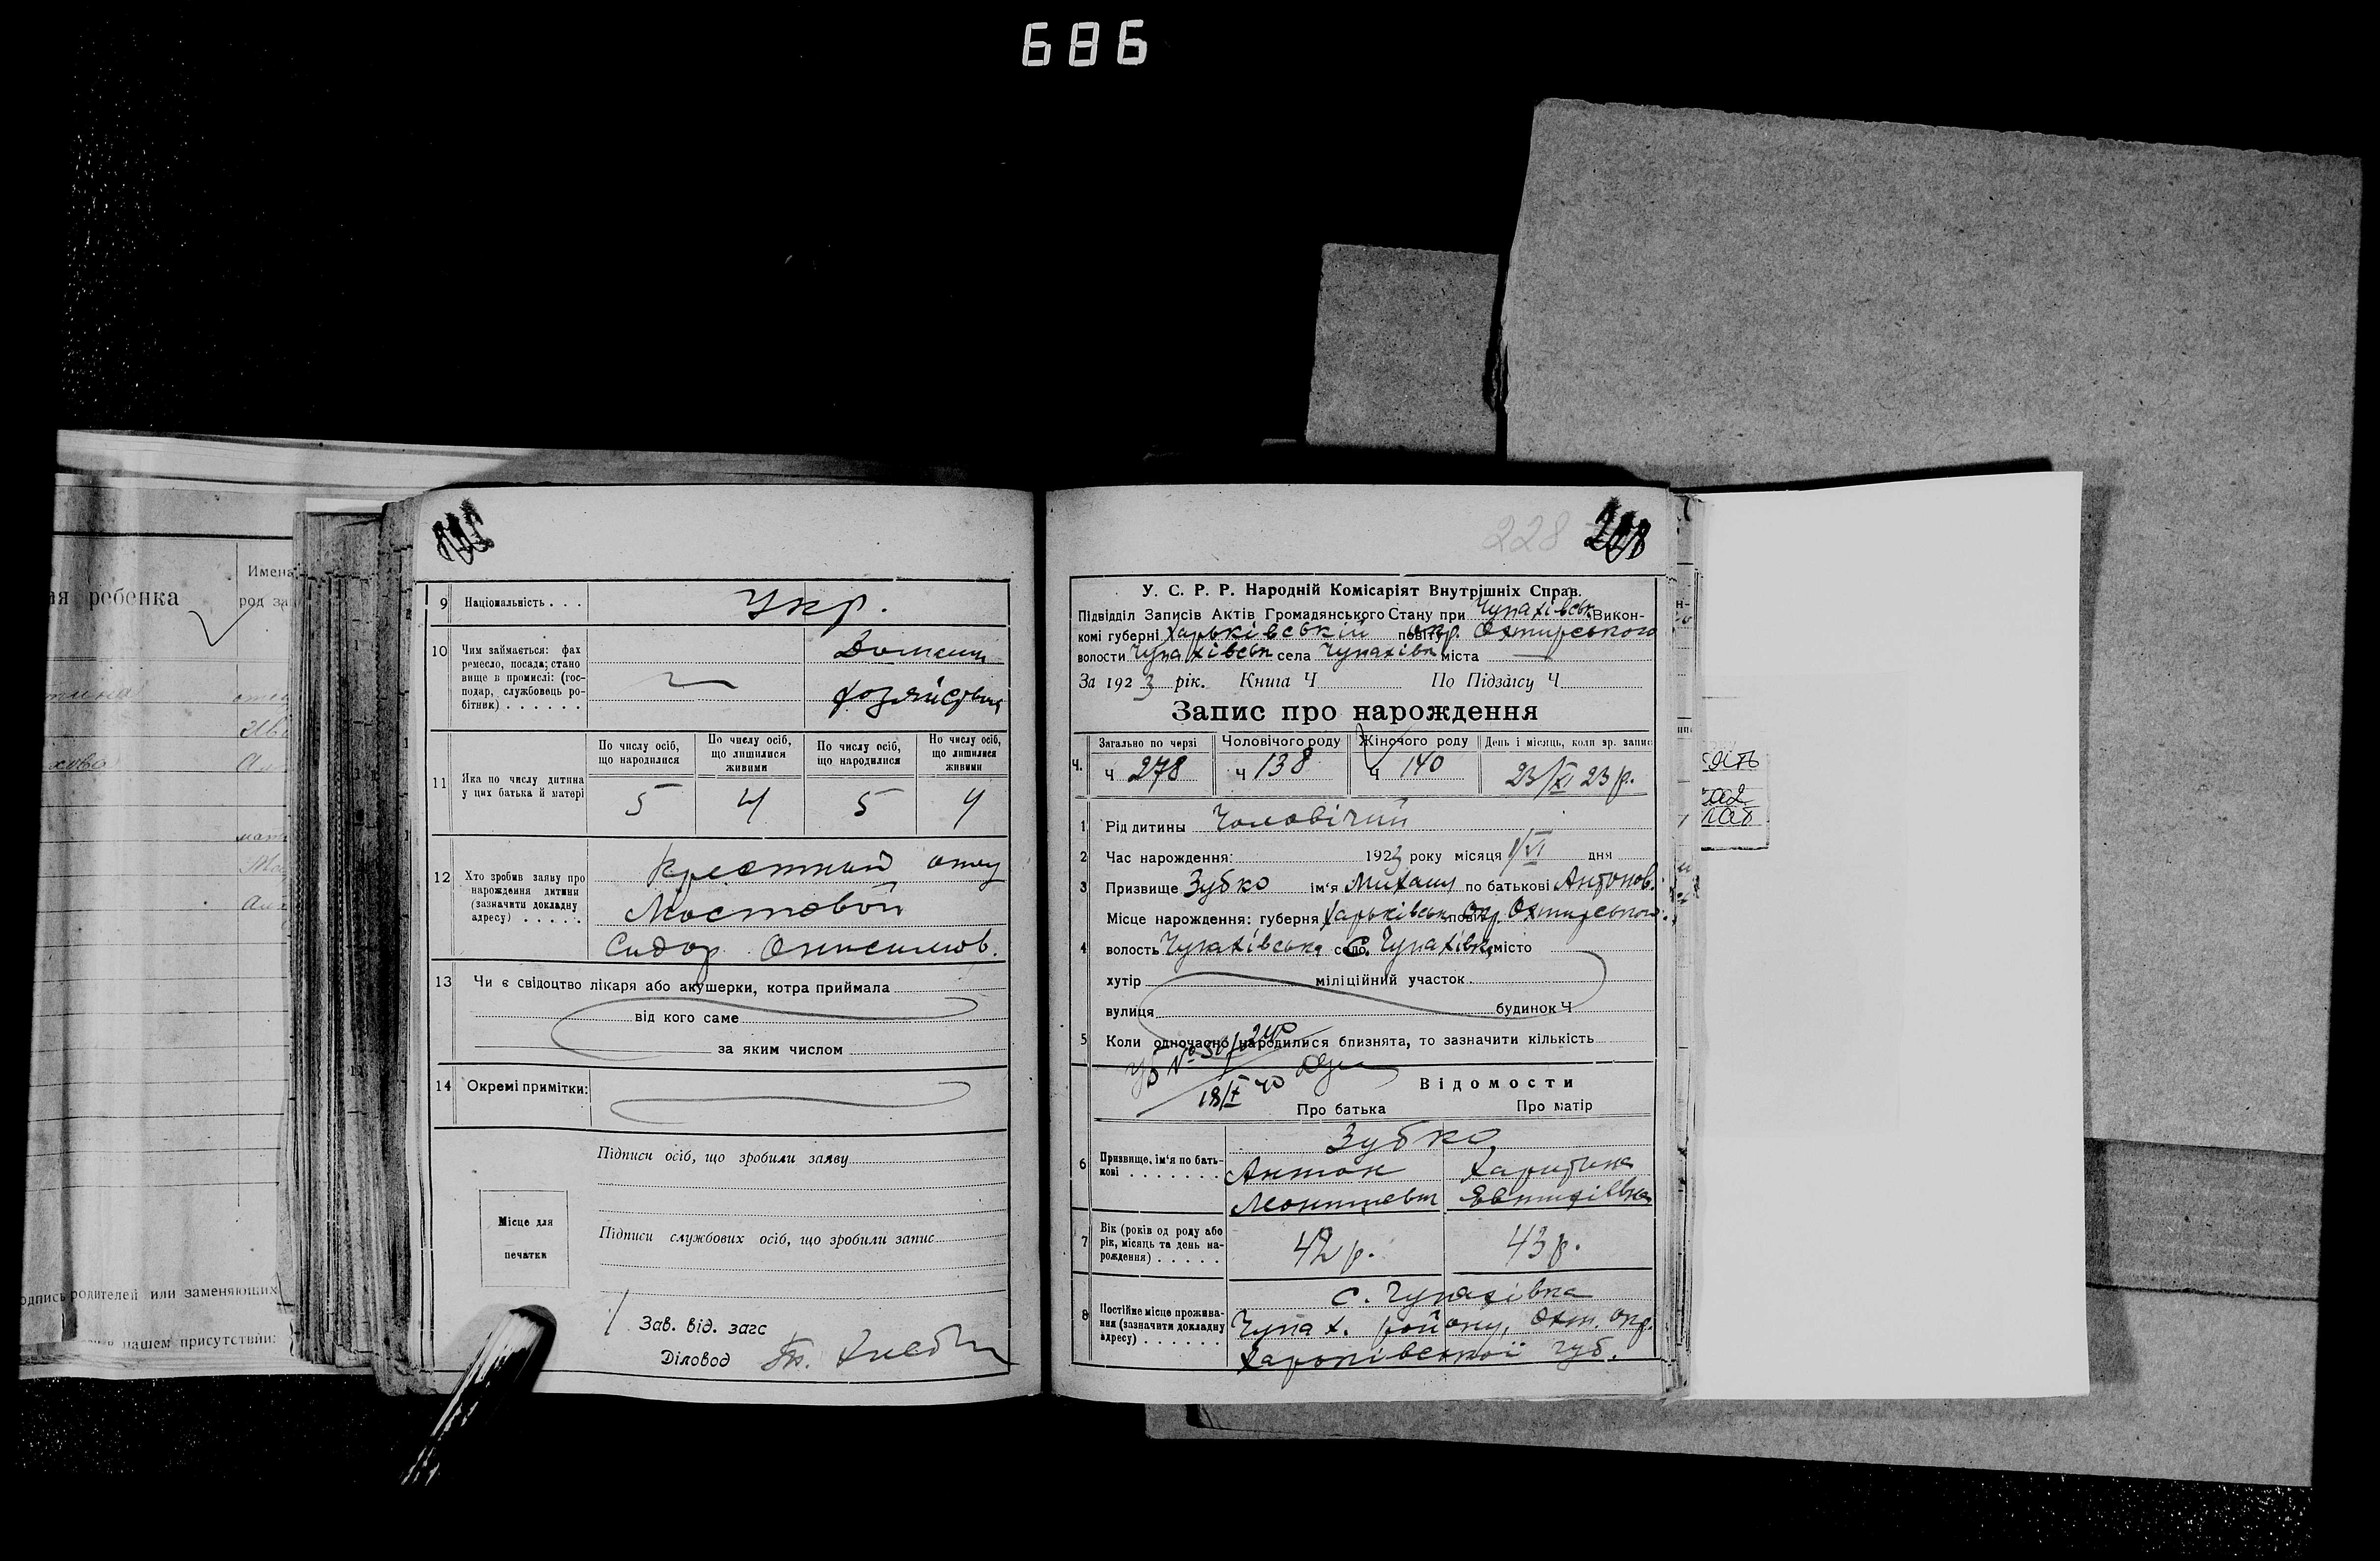 686
ребенка
Имена
род за
одпись родителей или заменяющих
нашем присутствии:
9 Національность . . . Укр.
10 Чим займається: фах
ремесло, посада; стано
вище в промислі: (гос-
подар, службовець ро-
бітник) . . . . . .
Домашн
хозяйство
11 Яка по числу дитина
у цих батька й матері
По числу осіб,
що народилися
По числу осіб,
що лишилися
живими
По числу осіб,
що народилися
Но числу осіб,
що лишилися
живими
5 4 5 4
12 Хто зробив заяву про
нарождення дитини
(зазначити докладну
адресу) . . . . .
Крестный отец
Мостовой
Сидор Онисимов.
13 Чи є свідоцтво лікаря або акушерки, котра приймала
від кого саме
за яким числом
14 Окремі примітки:
Підписи осіб, що зробили заяву
Місце для
печатки
Підписи службових осіб, що зробили запис
Зав. від. загс
Діловод
228
У. С. Р. Р. Народній Комісаріят Внутрішніх Справ.
Підвідділ Записів Актів Громадянського Стану при Чупахівськ Викон-
комі губерні Харьківській повіту окр. Охтирського
волости Чупахівськ села Чупахівк міста
За 1923 рік. Книга Ч По Підзаісу Ч
Запис про нарождення
Загально по черзі Чоловічого роду Жіночого роду День і місяць, коли зр. запис
ч. ч 278 ч 138 ч 140 23/XI 23 р.
1 Рід дитины Чоловічий
2 Час нарождення: 1923 року місяця 1/VI дня
3 Призвище Зубко ім'я Михаил по батькові Антонов.
Місце нарождення: губерня Харьківськ повіт Окр. Охтирського
4 волость Чупахівська село С. Чупахівка місто
хутір міліційний участок
вулиця будинок Ч
5 Коли одночасно народилися близнята, то зазначити кількість
18/X 40
Відомости
Про батька Про матір
6 Призвище, ім'я по бать-
кові . . . . . . .
Зубко
Антон Харитина
Евтихіївна
7 Вік (років од роду або
рік, місяць та день на-
рождення) . . . . .
42 р. 43 р.
8 Постійне місце прожива-
ння (зазначити докладну
адресу) . . . . . .
с. Чупахівка
Чупах. району, Охт. окр.
Харьківської губ.